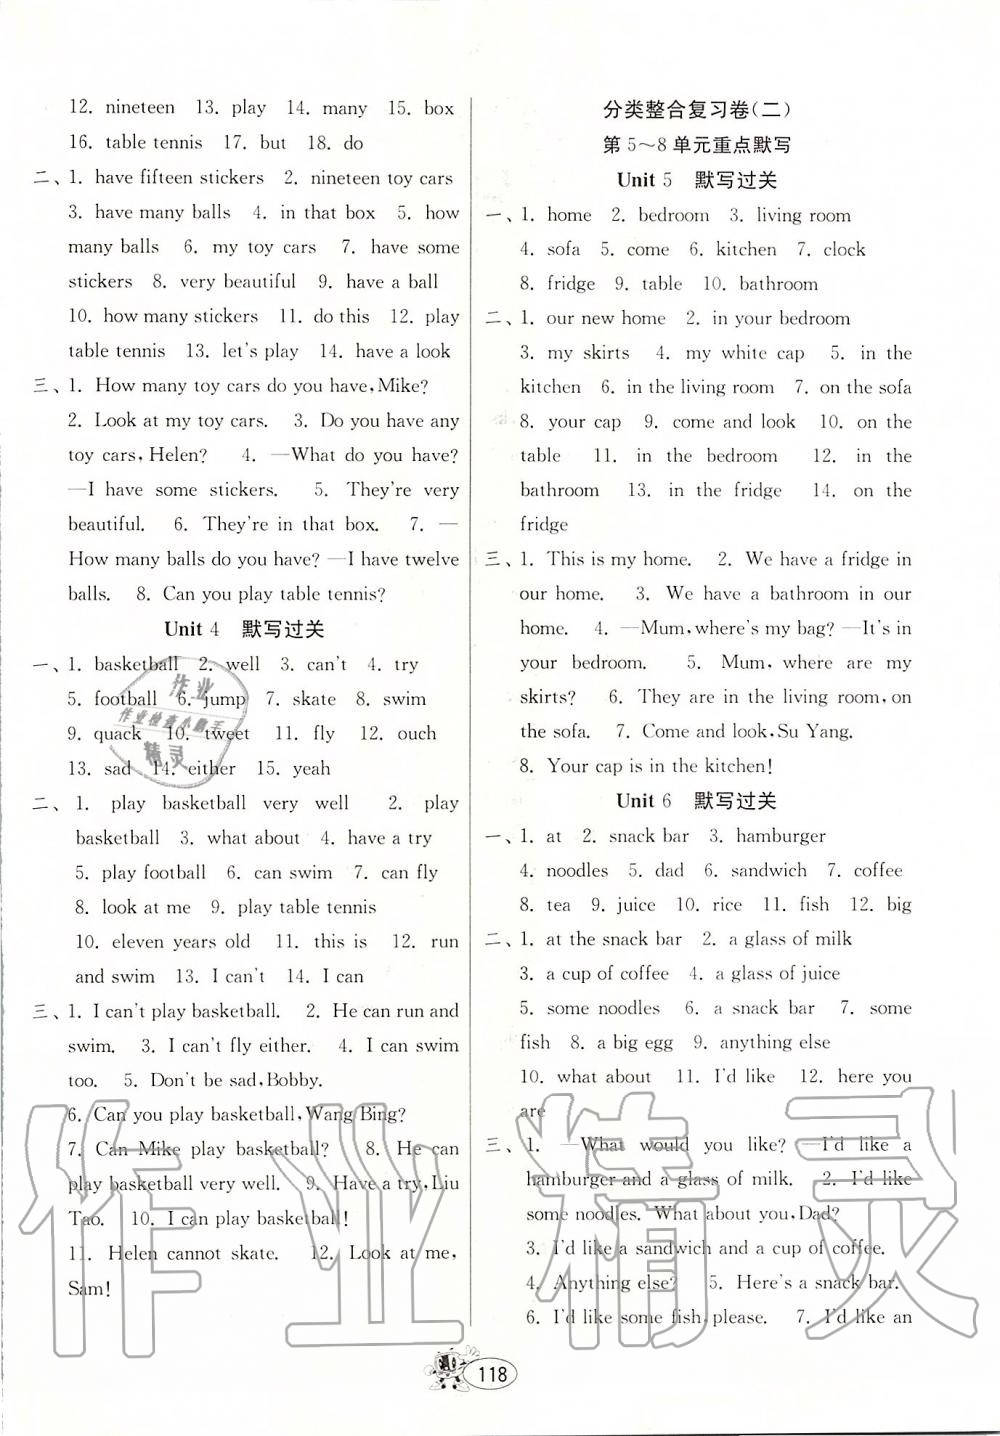 12. nineteen 13. play 14. many 15. box
16. table tennis 17. but 18. do
二、1. have fifteen stickers 2. nineteen toy cars
3. have many balls 4. in that box 5. how
many balls 6. my toy cars 7. have some
stickers 8. very beautiful 9. have a ball
10. how many stickers 11. do this 12. play
table tennis 13. let's play 14. have a look
三、1. How many toy cars do you have, Mike?
2. Look at my toy cars. 3. Do you have any
toy cars, Helen? 4. —What do you have?
—I have some stickers. 5. They're very
beautiful. 6. They're in that box. 7. —
How many balls do you have? —I have twelve
balls. 8. Can you play table tennis?
Unit 4 默写过关
一、1. basketball 2. well 3. can't 4. try
5. football 6. jump 7. skate 8. swim
9. quack 10. tweet 11. fly 12. ouch
13. sad 14. either 15. yeah
二、1. play basketball very well 2. play
basketball 3. what about 4. have a try
5. play football 6. can swim 7. can fly
8. look at me 9. play table tennis
10. eleven years old 11. this is 12. run
and swim 13. I can't 14. I can
三、1. I can't play basketball. 2. He can run and
swim. 3. I can't fly either. 4. I can swim
too. 5. Don't be sad, Bobby.
6. Can you play basketball, Wang Bing?
7. Can Mike play basketball? 8. He can
play basketball very well. 9. Have a try, Liu
Tao. 10. I can play basketball!
11. Helen cannot skate. 12. Look at me,
Sam!
分类整合复习卷(二)
第5~8单元重点默写
Unit 5 默写过关
一、1. home 2. bedroom 3. living room
4. sofa 5. come 6. kitchen 7. clock
8. fridge 9. table 10. bathroom
二、1. our new home 2. in your bedroom
3. my skirts 4. my white cap 5. in the
kitchen 6. in the living room 7. on the sofa
8. your cap 9. come and look 10. on the
table 11. in the bedroom 12. in the
bathroom 13. in the fridge 14. on the
fridge
三、1. This is my home. 2. We have a fridge in
our home. 3. We have a bathroom in our
home. 4. —Mum, where's my bag? —It's in
your bedroom. 5. Mum, where are my
skirts? 6. They are in the living room, on
the sofa. 7. Come and look, Su Yang.
8. Your cap is in the kitchen!
Unit 6 默写过关
一、1. at 2. snack bar 3. hamburger
4. noodles 5. dad 6. sandwich 7. coffee
8. tea 9. juice 10. rice 11. fish 12. big
二、1. at the snack bar 2. a glass of milk
3. a cup of coffee 4. a glass of juice
5. some noodles 6. a snack bar 7. some
fish 8. a big egg 9. anything else
10. what about 11. I'd like 12. here you
are
三、1. —What would you like? —I'd like a
hamburger and a glass of milk. 2. I'd like
some noodles. What about you, Dad?
3. I'd like a sandwich and a cup of coffee.
4. Anything else? 5. Here's a snack bar.
6. I'd like some fish, please. 7. I'd like an
118
作业
作业检查小助手
精灵
作业精灵